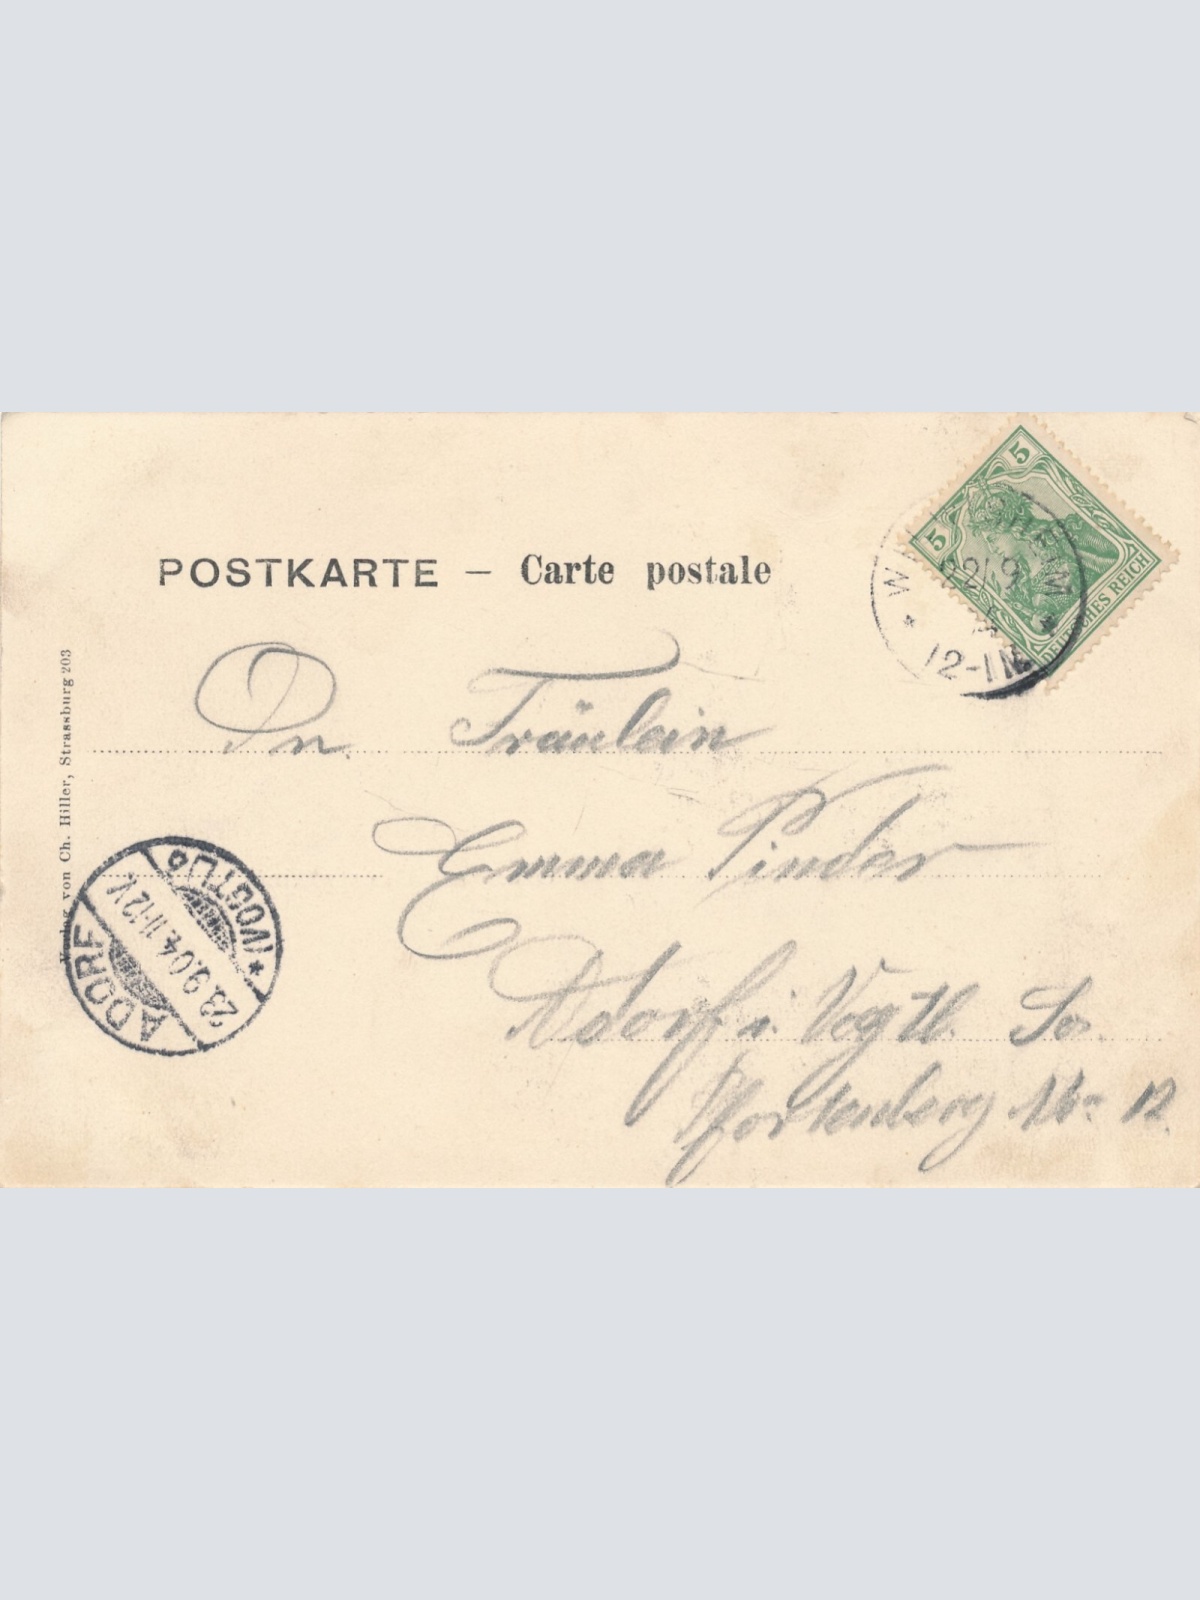 POSTKARTE – Carte postale
5
5
DEUTSCHES REICH
22 9
12-1 N
An Fräulein
Emma Pinder
Adorf i. Vogtl. Sa.
Pfortenberg No 12
Verlag von Ch. Hiller, Strassburg 203
ADORF
23.9.04. 11-12 V.
(VOGTL.)